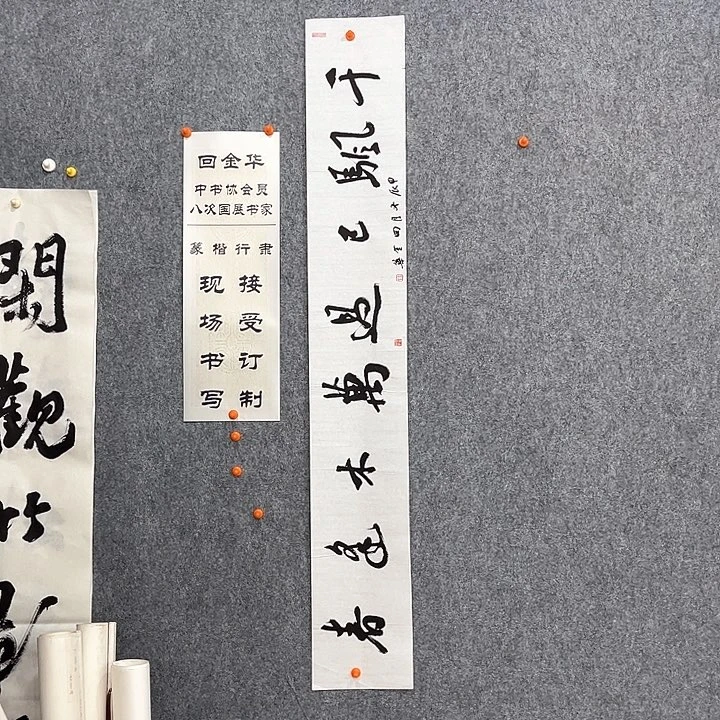 回金华
中书协会员
八次国展书家
篆楷行隶
现场书写
接受订制
千颿已過萬木逢春
閑觀竹